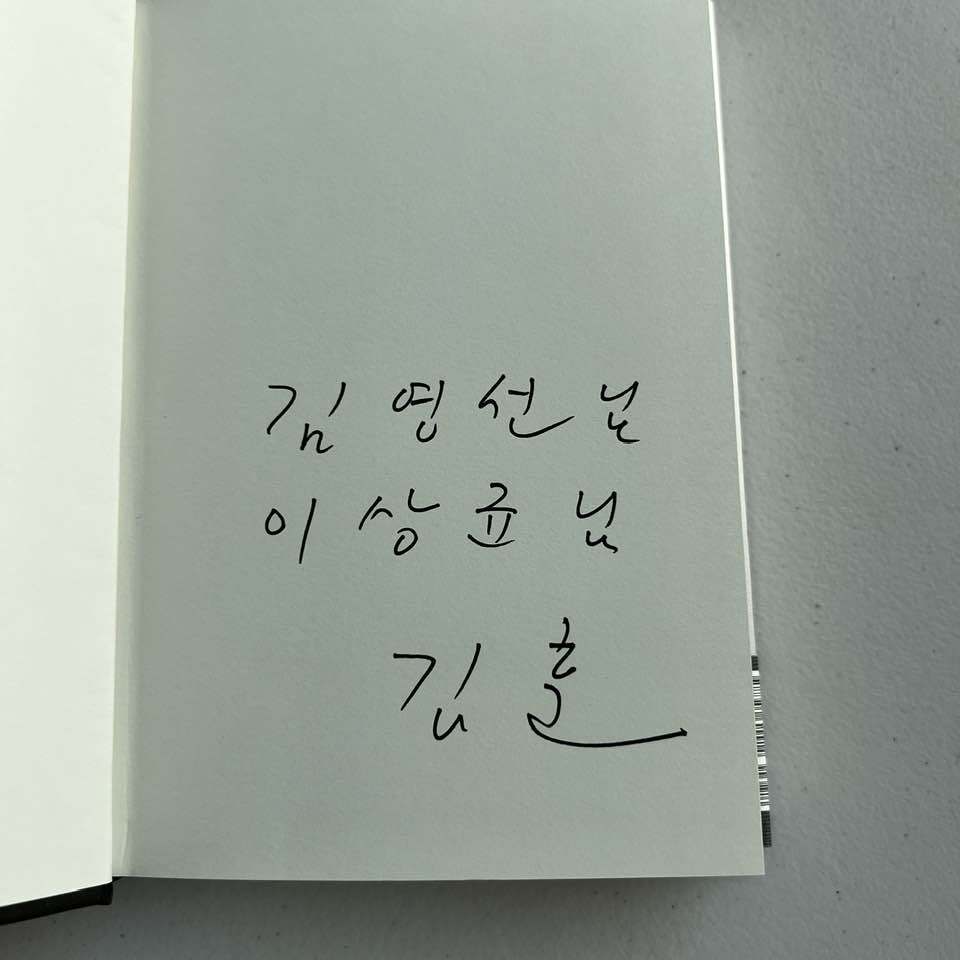 김영선님
이상규님
김훈